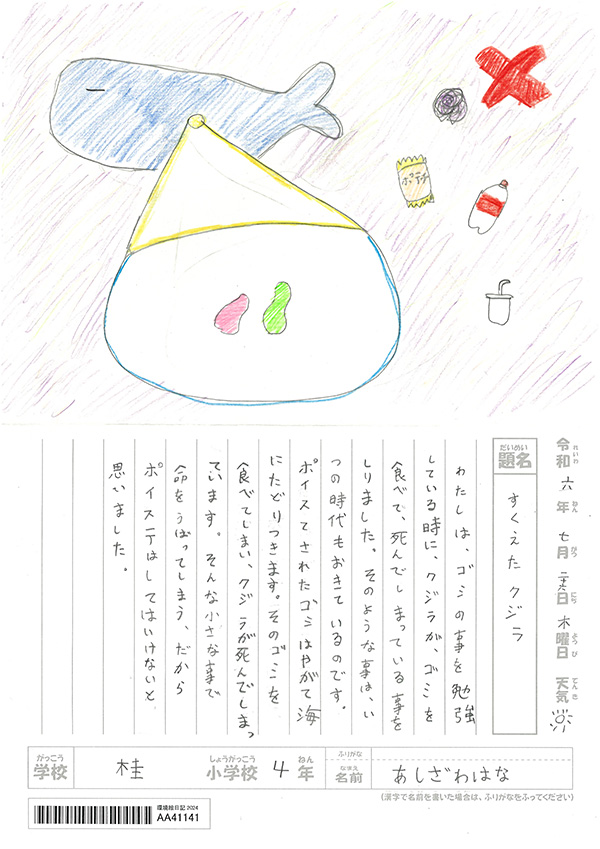 ポテチ
令和六年七月二十六日木曜日天気
れいわ ねん がつ にち ようび てんき
だいめい
題名
すくえたクジラ
わたしは、ゴミの事を勉強
している時に、クジラが、ゴミを
食べて、死んでしまっている事を
しりました。そのような事は、い
つの時代もおきているのです。
ポイステされたゴミはやがて海
にたどりつきます。そのゴミを
食べてしまい、クジラが死んでしまっ
ています。そんな小さな事で
命をうばってしまう、だから
ポイステはしてはいけないと
思いました。
がっこう しょうがっこう ねん ふりがな
学校 桂 小学校 4年
なまえ
名前 あしざわはな
(漢字で名前を書いた場合は、ふりがなをふってください)
環境絵日記2024
AA41141